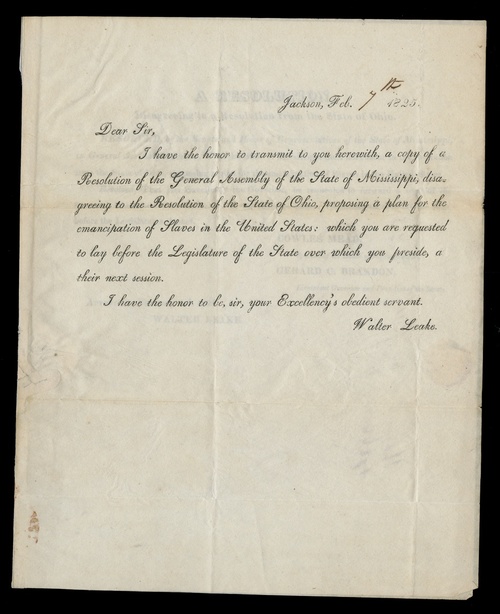 Jackson, Feb. 7th 1825.
Dear Sir,
I have the honor to transmit to you herewith, a copy of a
Resolution of the General Assembly of the State of Mississippi, disa-
greeing to the Resolution of the State of Ohio, proposing a plan for the
emancipation of Slaves in the United States: which you are requested
to lay before the Legislature of the State over which you preside, a
their next session.
I have the honor to be, sir, your Excellency's obedient servant.
Walter Leake.